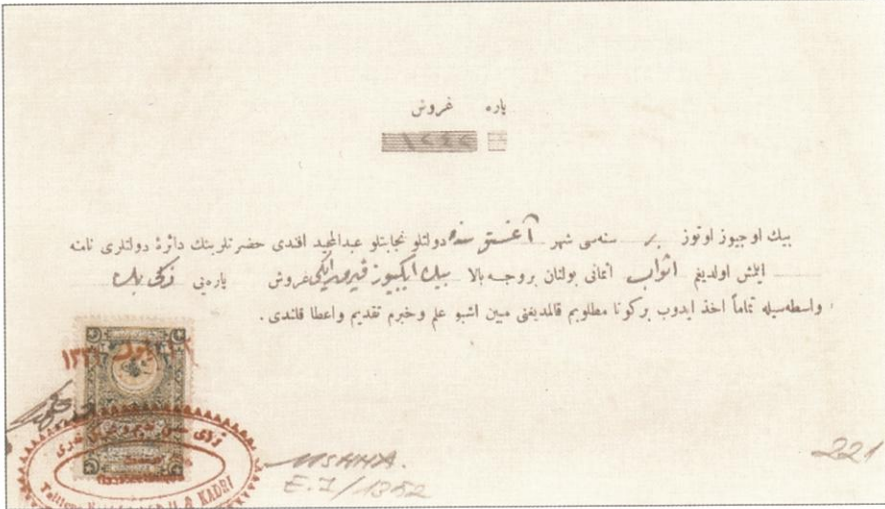 پاره غروش
١٢٤٢
بیك اوچیوز اوتوز بر سنه‌سی شهر آغستوس سنه دولتلو نجابتلو عبدالمجید افندی حضرتلرینك دائرهٔ دولتلری نامنه
ایلمش اولدیغم اثواب اثمانی بولنان بروجه بالا بیك ایكیوز قرق ایكی غروش پاره‌یی زکی بك
واسطه‌سیله تماماً اخذ ایدوب بر كونا مطلوبم قالمدیغنی مبین اشبو علم و خبرم تقدیم واعطا قلندی.
١٣٣١
زکی
Tailleur & KADRI
MSHHA.
E.I/1352
221